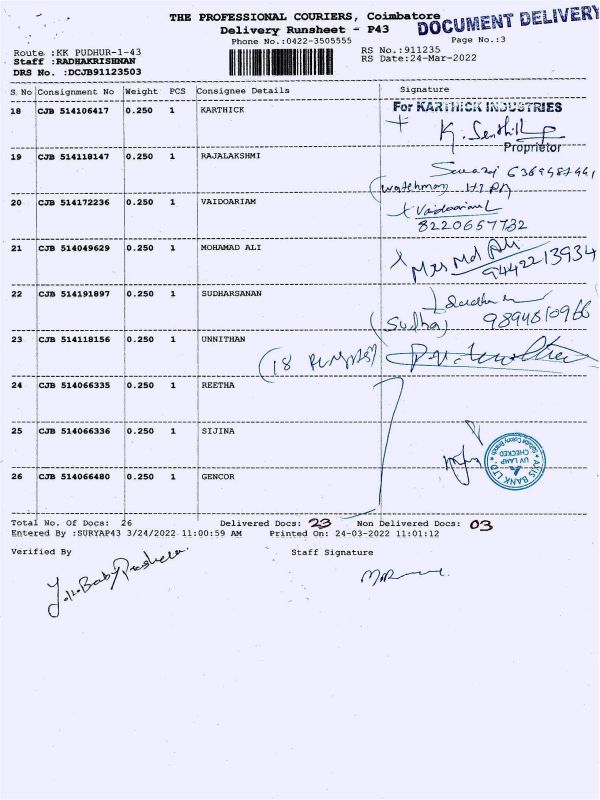 THE PROFESSIONAL COURIERS, Coimbatore
DOCUMENT DELIVERY
Delivery Runsheet - P43
Phone No.:0422-3505555
Page No.:3
Route :KK PUDHUR-1-43
RS No.:911235
Staff :RADHAKRISHNAN
RS Date:24-Mar-2022
DRS No. :DCJB91123503
S No Consignment No Weight PCS Consignee Details Signature
18 CJB 514106417 0.250 1 KARTHICK
For KARTHICK INDUSTRIES
Proprietor
19 CJB 514118147 0.250 1 RAJALAKSHMI
20 CJB 514172236 0.250 1 VAIDOARIAM
8220657732
21 CJB 514049629 0.250 1 MOHAMAD ALI
Mrs Md Ali
9442213934
22 CJB 514191897 0.250 1 SUDHARSANAN
9894810966
23 CJB 514118156 0.250 1 UNNITHAN
24 CJB 514066335 0.250 1 REETHA
25 CJB 514066336 0.250 1 SIJINA
AXIS BANK LTD
UV LAMP
CHECKED
26 CJB 514066480 0.250 1 GENCOR
Total No. Of Docs: 26 Delivered Docs: 23 Non Delivered Docs: 03
Entered By :SURYAP43 3/24/2022 11:00:59 AM Printed On: 24-03-2022 11:01:12
Verified By Staff Signature